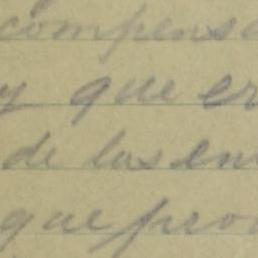 compensa
y que er
de las en
que pro